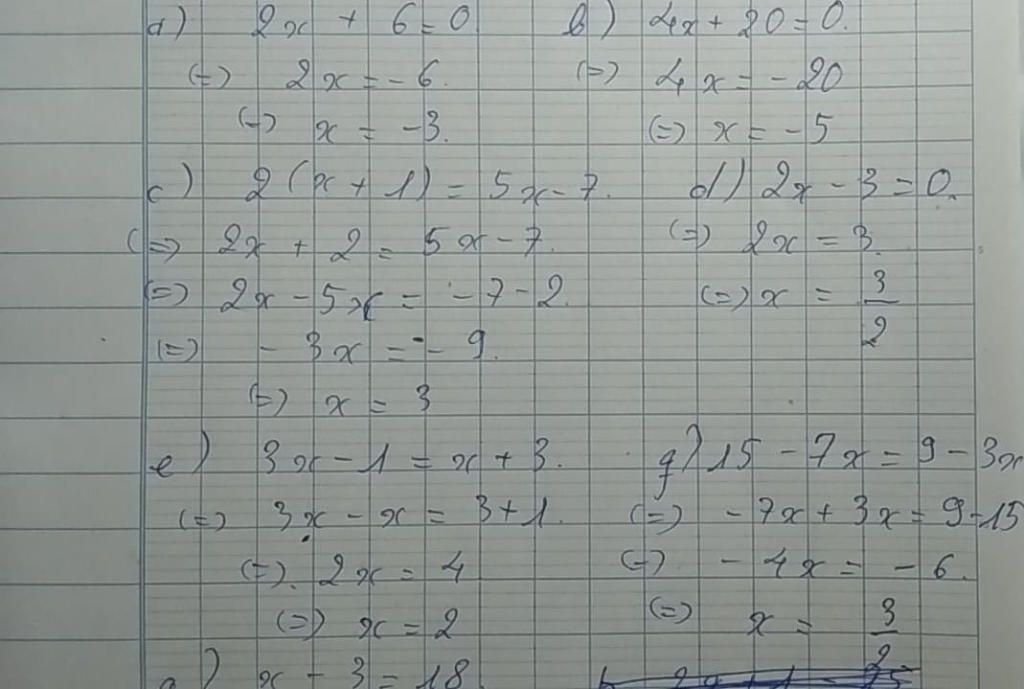 a) 2x + 6 = 0
(=) 2x = -6.
(=) x = -3.
b) 4x + 20 = 0.
(=) 4x = -20
(=) x = -5
c) 2(x + 1) = 5x - 7.
(=) 2x + 2 = 5x - 7.
(=) 2x - 5x = -7 - 2.
(=) - 3x = - 9.
(=) x = 3
d) 2x - 3 = 0.
(=) 2x = 3.
(=) x = 3/2
e) 3x - 1 = x + 3.
(=) 3x - x = 3 + 1.
(=). 2x = 4
(=) x = 2
f) 15 - 7x = 9 - 3x
(=) - 7x + 3x = 9 - 15
(=) - 4x = - 6.
(=) x = 3/2
g) x - 3 = 18